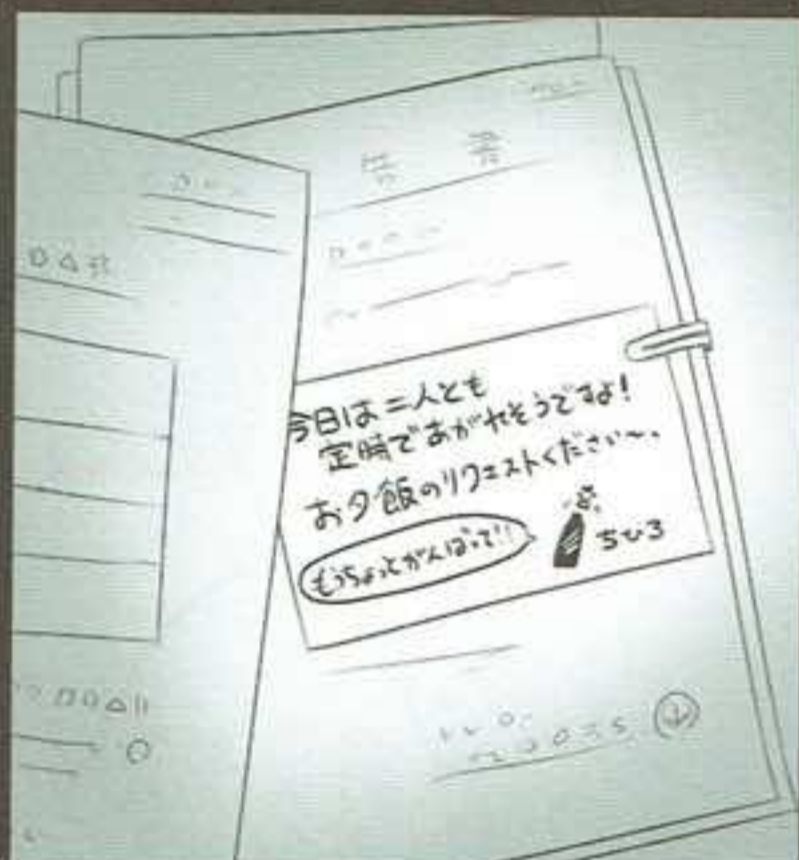 今日は二人とも
定時であがれそうですよ!
お夕飯のリクエストください〜。
もうちょっとがんばって!!
ちひろ